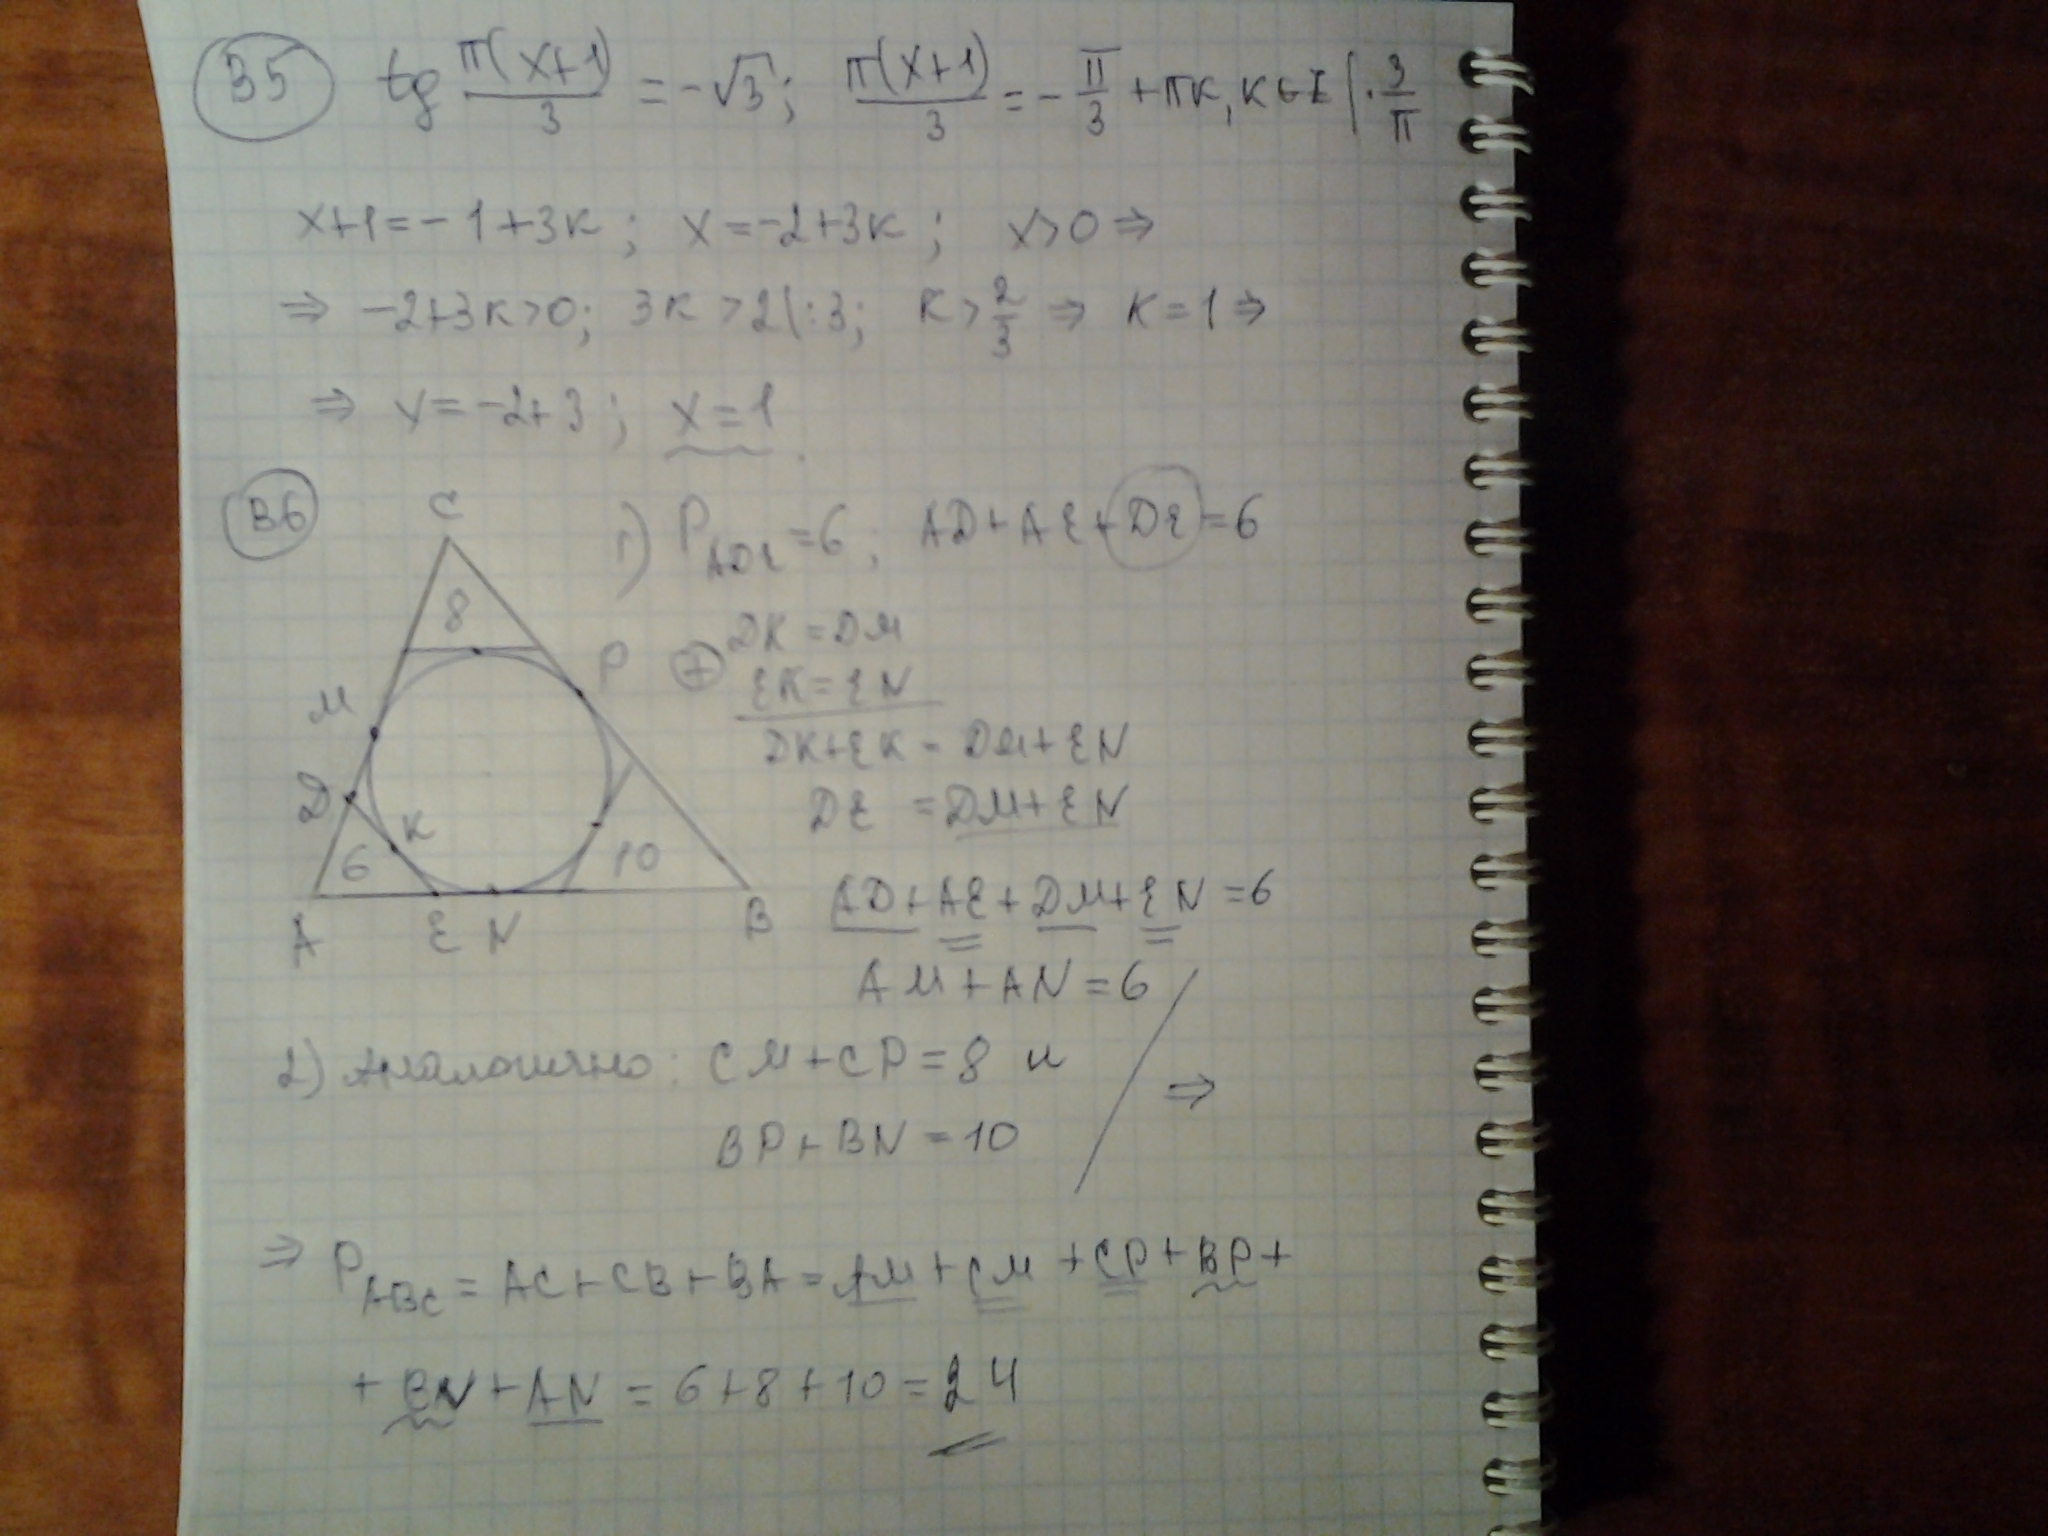 В5 tg π(x+1)/3 = -√3; π(x+1)/3 = -π/3 + πк, к∈Z |·3/π
x+1=-1+3к; x=-2+3к; x>0 ⇒
⇒ -2+3к>0; 3к>2|:3; к>2/3 ⇒ к=1 ⇒
⇒ x=-2+3; x=1
В6
C
8
M
P
D
K
6
10
A E N B
1) P ADE = 6; AD+AE+DE=6
+ DK=DM
EK=EN
DK+EK=DM+EN
DE=DM+EN
AD+AE+DM+EN=6
AM+AN=6
2) Аналогично: CM+CP=8 и
BP+BN=10
⇒
⇒ P ABC = AC+CB+BA=AM+CM+CP+BP+
+BN+AN=6+8+10=24